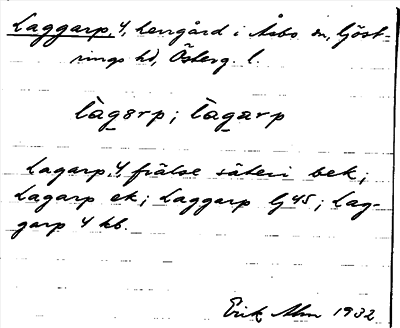 Laggarp, 4, herrgård i Åsbo sn, Göst-
rings hd, Österg. l.
làgərp; làgarp
Lagarp, 4, frälse säteri bek;
Lagarp ek; Laggarp Gj 45; Lag-
garp 4 kb.
Erik Alm 1932